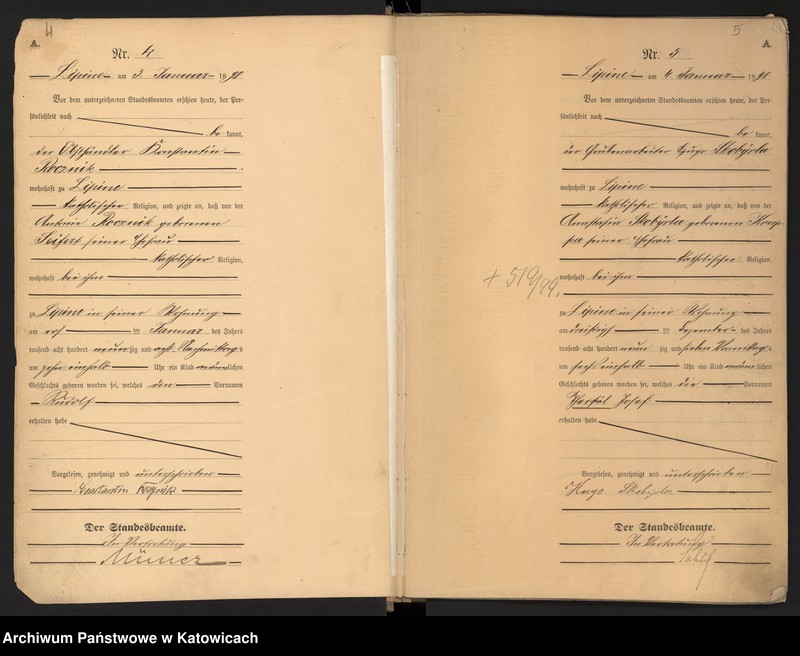 4
A.
Nr. 4
Lipine am 3. Januar 1898
Vor dem unterzeichneten Standesbeamten erschien heute, der Per-
sönlichkeit nach
be kannt,
der Obsthändler Konstantin
Rocznik
wohnhaft zu Lipine
katholischer Religion, und zeigte an, daß von der
Antonie Rocznik geborenen
Seifert seiner Ehefrau
katholischer Religion,
wohnhaft bei ihm
zu Lipine in seiner Wohnung
am ersten Januar des Jahres
tausend acht hundert neun zig und acht Nachmittags
um zehn einhalb Uhr ein Kind männlichen
Geschlechts geboren worden sei, welches den Vornamen
Rudolf
erhalten habe
Vorgelesen, genehmigt und unterschrieben
Constantin Rocznik
Der Standesbeamte.
In Vertretung
5
A
Nr. 5
Lipine am 4. Januar 1898
Vor dem unterzeichneten Standesbeamten erschien heute, der Per-
sönlichkeit nach
be kannt,
der Grubenarbeiter Hugo Skobyrla
wohnhaft zu Lipine
katholischer Religion, und zeigte an, daß von der
Anastasia Skobyrla geborenen
seiner Ehefrau
katholischer Religion,
wohnhaft bei ihm
+ 519/99.
zu Lipine in seiner Wohnung
am Dezember des Jahres
tausend acht hundert neun zig und sieben Vormittags
um sechs einhalb Uhr ein Kind männlichen
Geschlechts geboren worden sei, welches die Vornamen
Josef
erhalten habe
Vorgelesen, genehmigt und unterschrieben
Hugo Skobyrla
Der Standesbeamte.
In Vertretung
Archiwum Państwowe w Katowicach